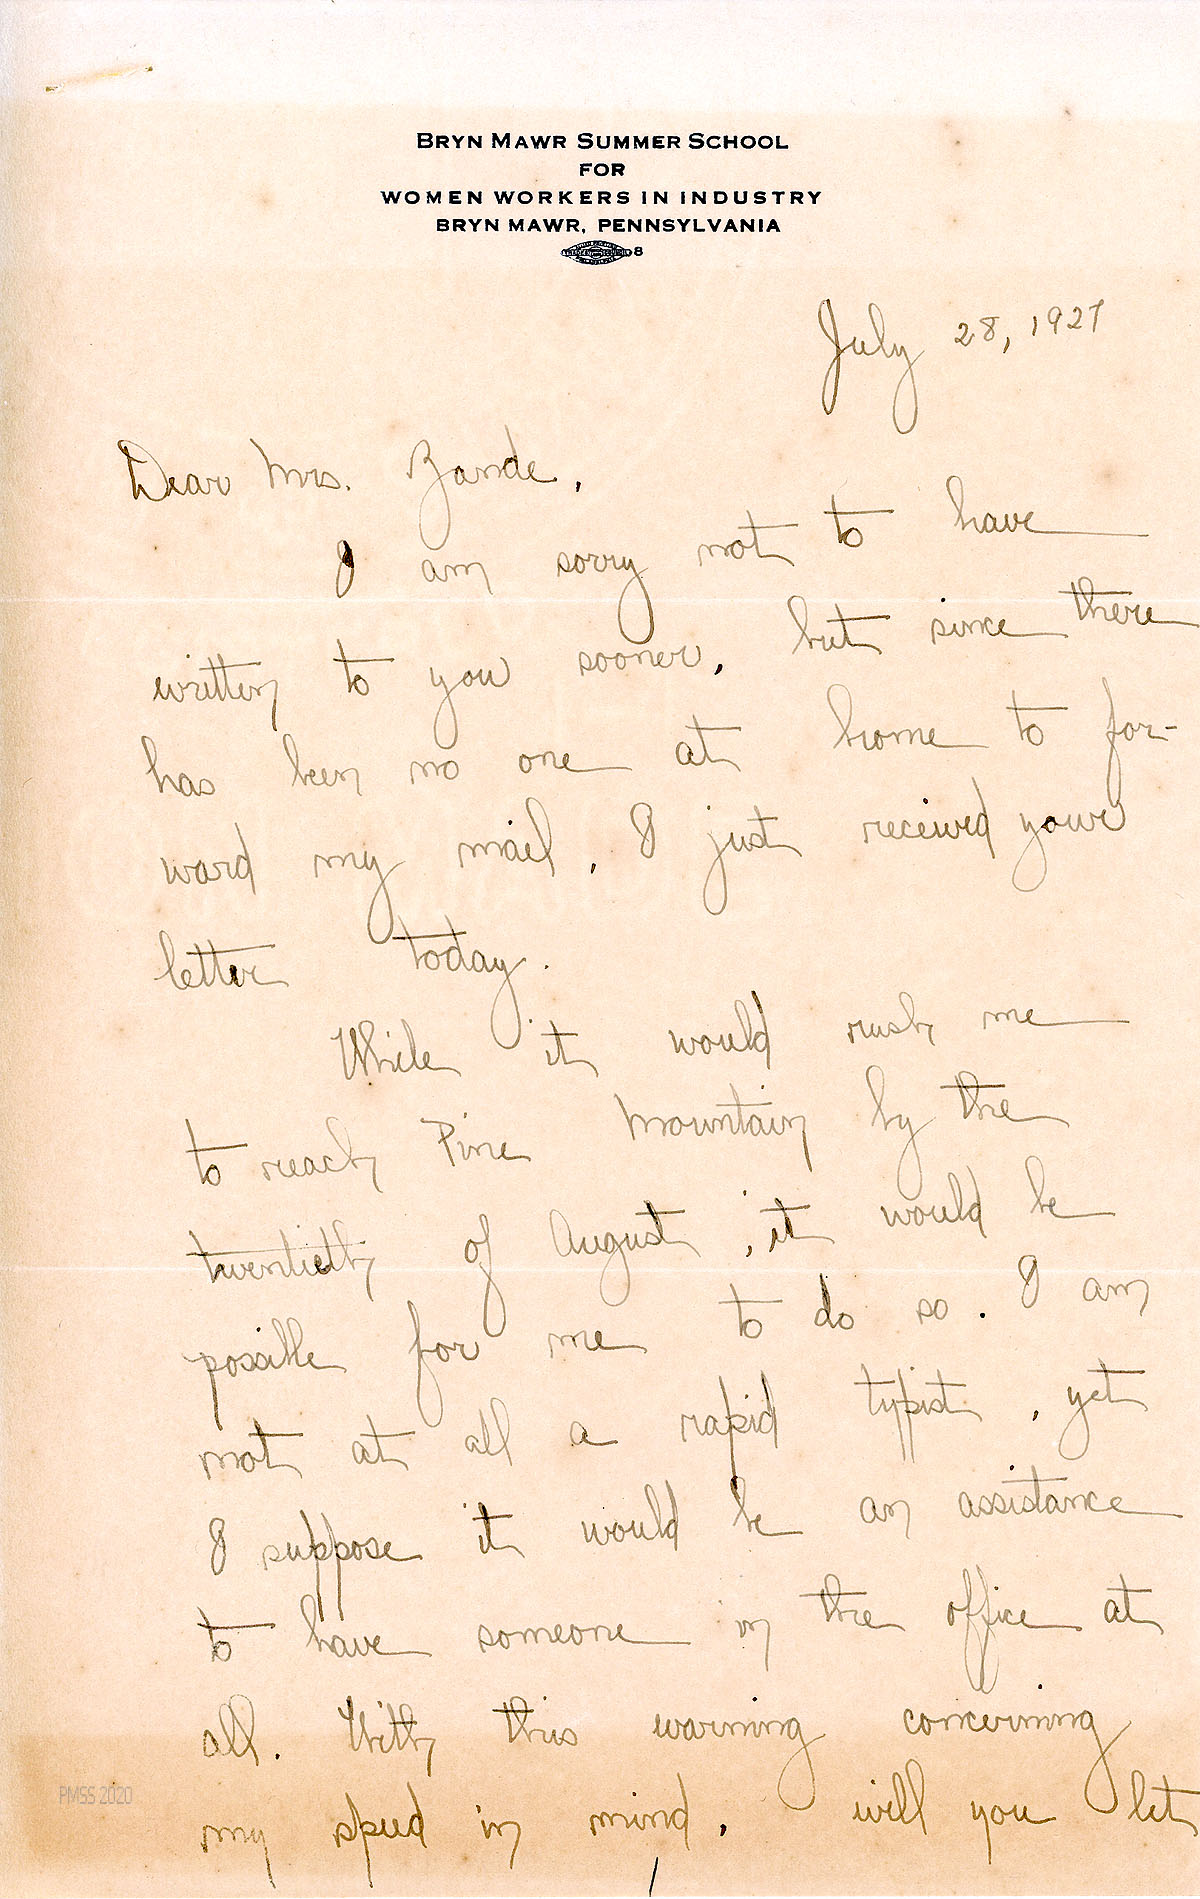 BRYN MAWR SUMMER SCHOOL
FOR
WOMEN WORKERS IN INDUSTRY
BRYN MAWR, PENNSYLVANIA
8
July 28, 1927
Dear Mrs. Zande,
I am sorry not to have
written to you sooner, but since there
has been no one at home to for-
ward my mail, I just received your
letter today.
While it would rush me
to reach Pine Mountain by the
twentieth of August, it would be
possible for me to do so. I am
not at all a rapid typist, yet
I suppose it would be an assistance
to have someone in the office at
all. With this warning concerning
my speed in mind, will you let
PMSS 2020